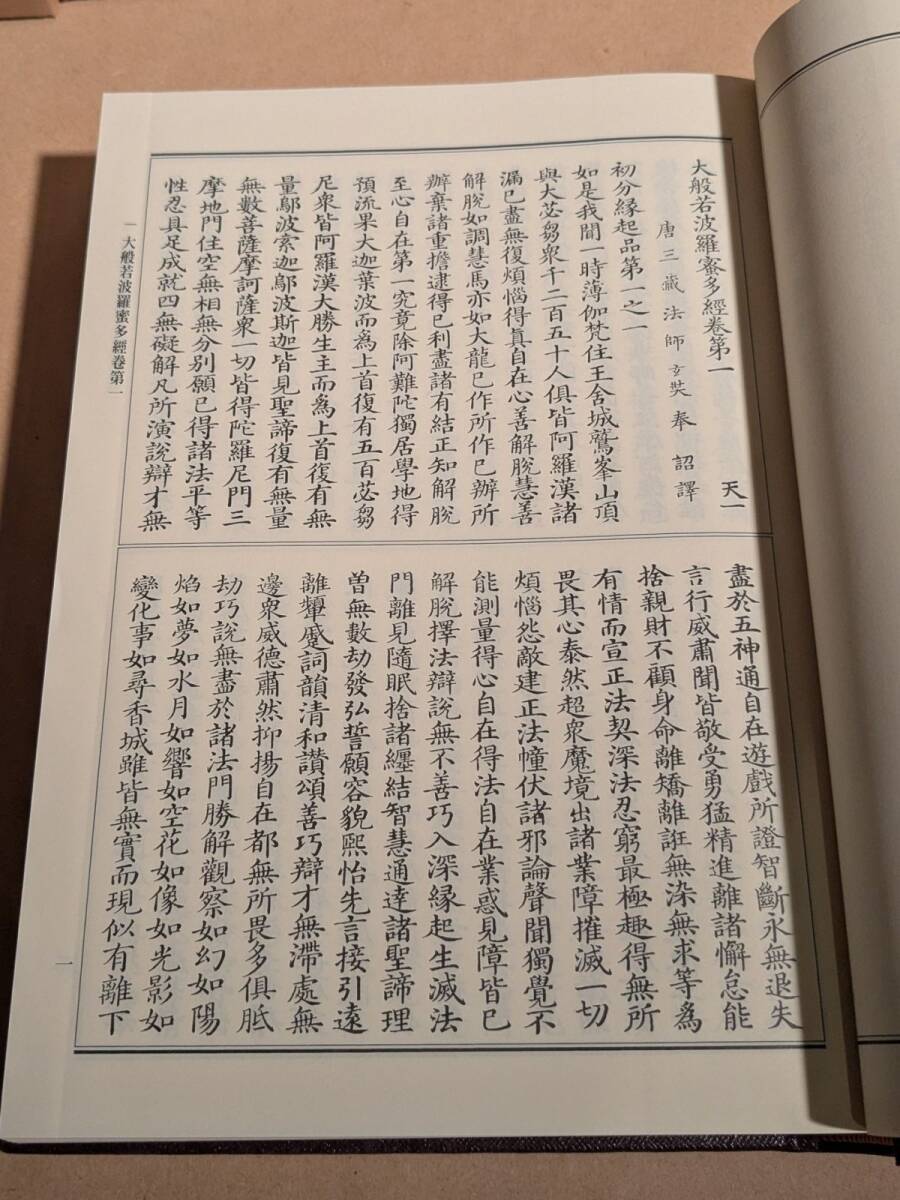 大般若波羅蜜多經卷第一　天一
唐三藏法師玄奘奉　詔譯
初分緣起品第一之一
如是我聞一時薄伽梵住王舍城鷲峯山頂
與大苾芻衆千二百五十人俱皆阿羅漢諸
漏已盡無復煩惱得真自在心善解脫慧善
解脫如調慧馬亦如大龍已作所作已辦所
辦棄諸重擔逮得已利盡諸有結正知解脫
至心自在第一究竟除阿難陀獨居學地得
預流果大迦葉波而為上首復有五百苾芻
尼衆皆阿羅漢大勝生主而為上首復有無
量鄔波索迦鄔波斯迦皆見聖諦復有無量
無數菩薩摩訶薩衆一切皆得陀羅尼門三
摩地門住空無相無分別願已得諸法平等
性忍具足成就四無礙解凡所演說辯才無
盡於五神通自在遊戲所證智斷永無退失
言行威肅聞皆敬受勇猛精進離諸懈怠能
捨親財不顧身命離矯離誑無染無求等為
有情而宣正法契深法忍窮最極趣得無所
畏其心泰然超衆魔境出諸業障摧滅一切
煩惱怨敵建正法幢伏諸邪論聲聞獨覺不
能測量得心自在得法自在業惑見障皆已
解脫擇法辯說無不善巧入深緣起生滅法
門離見隨眠捨諸纏結智慧通達諸聖諦理
曾無數劫發弘誓願容貌熙怡先言接引遠
離顰蹙詞韻清和讚頌善巧辯才無滯處無
邊衆威德肅然抑揚自在都無所畏多俱胝
劫巧說無盡於諸法門勝解觀察如幻如陽
焰如夢如水月如響如空花如像如光影如
變化事如尋香城雖皆無實而現似有離下
一　大般若波羅蜜多經卷第一
一